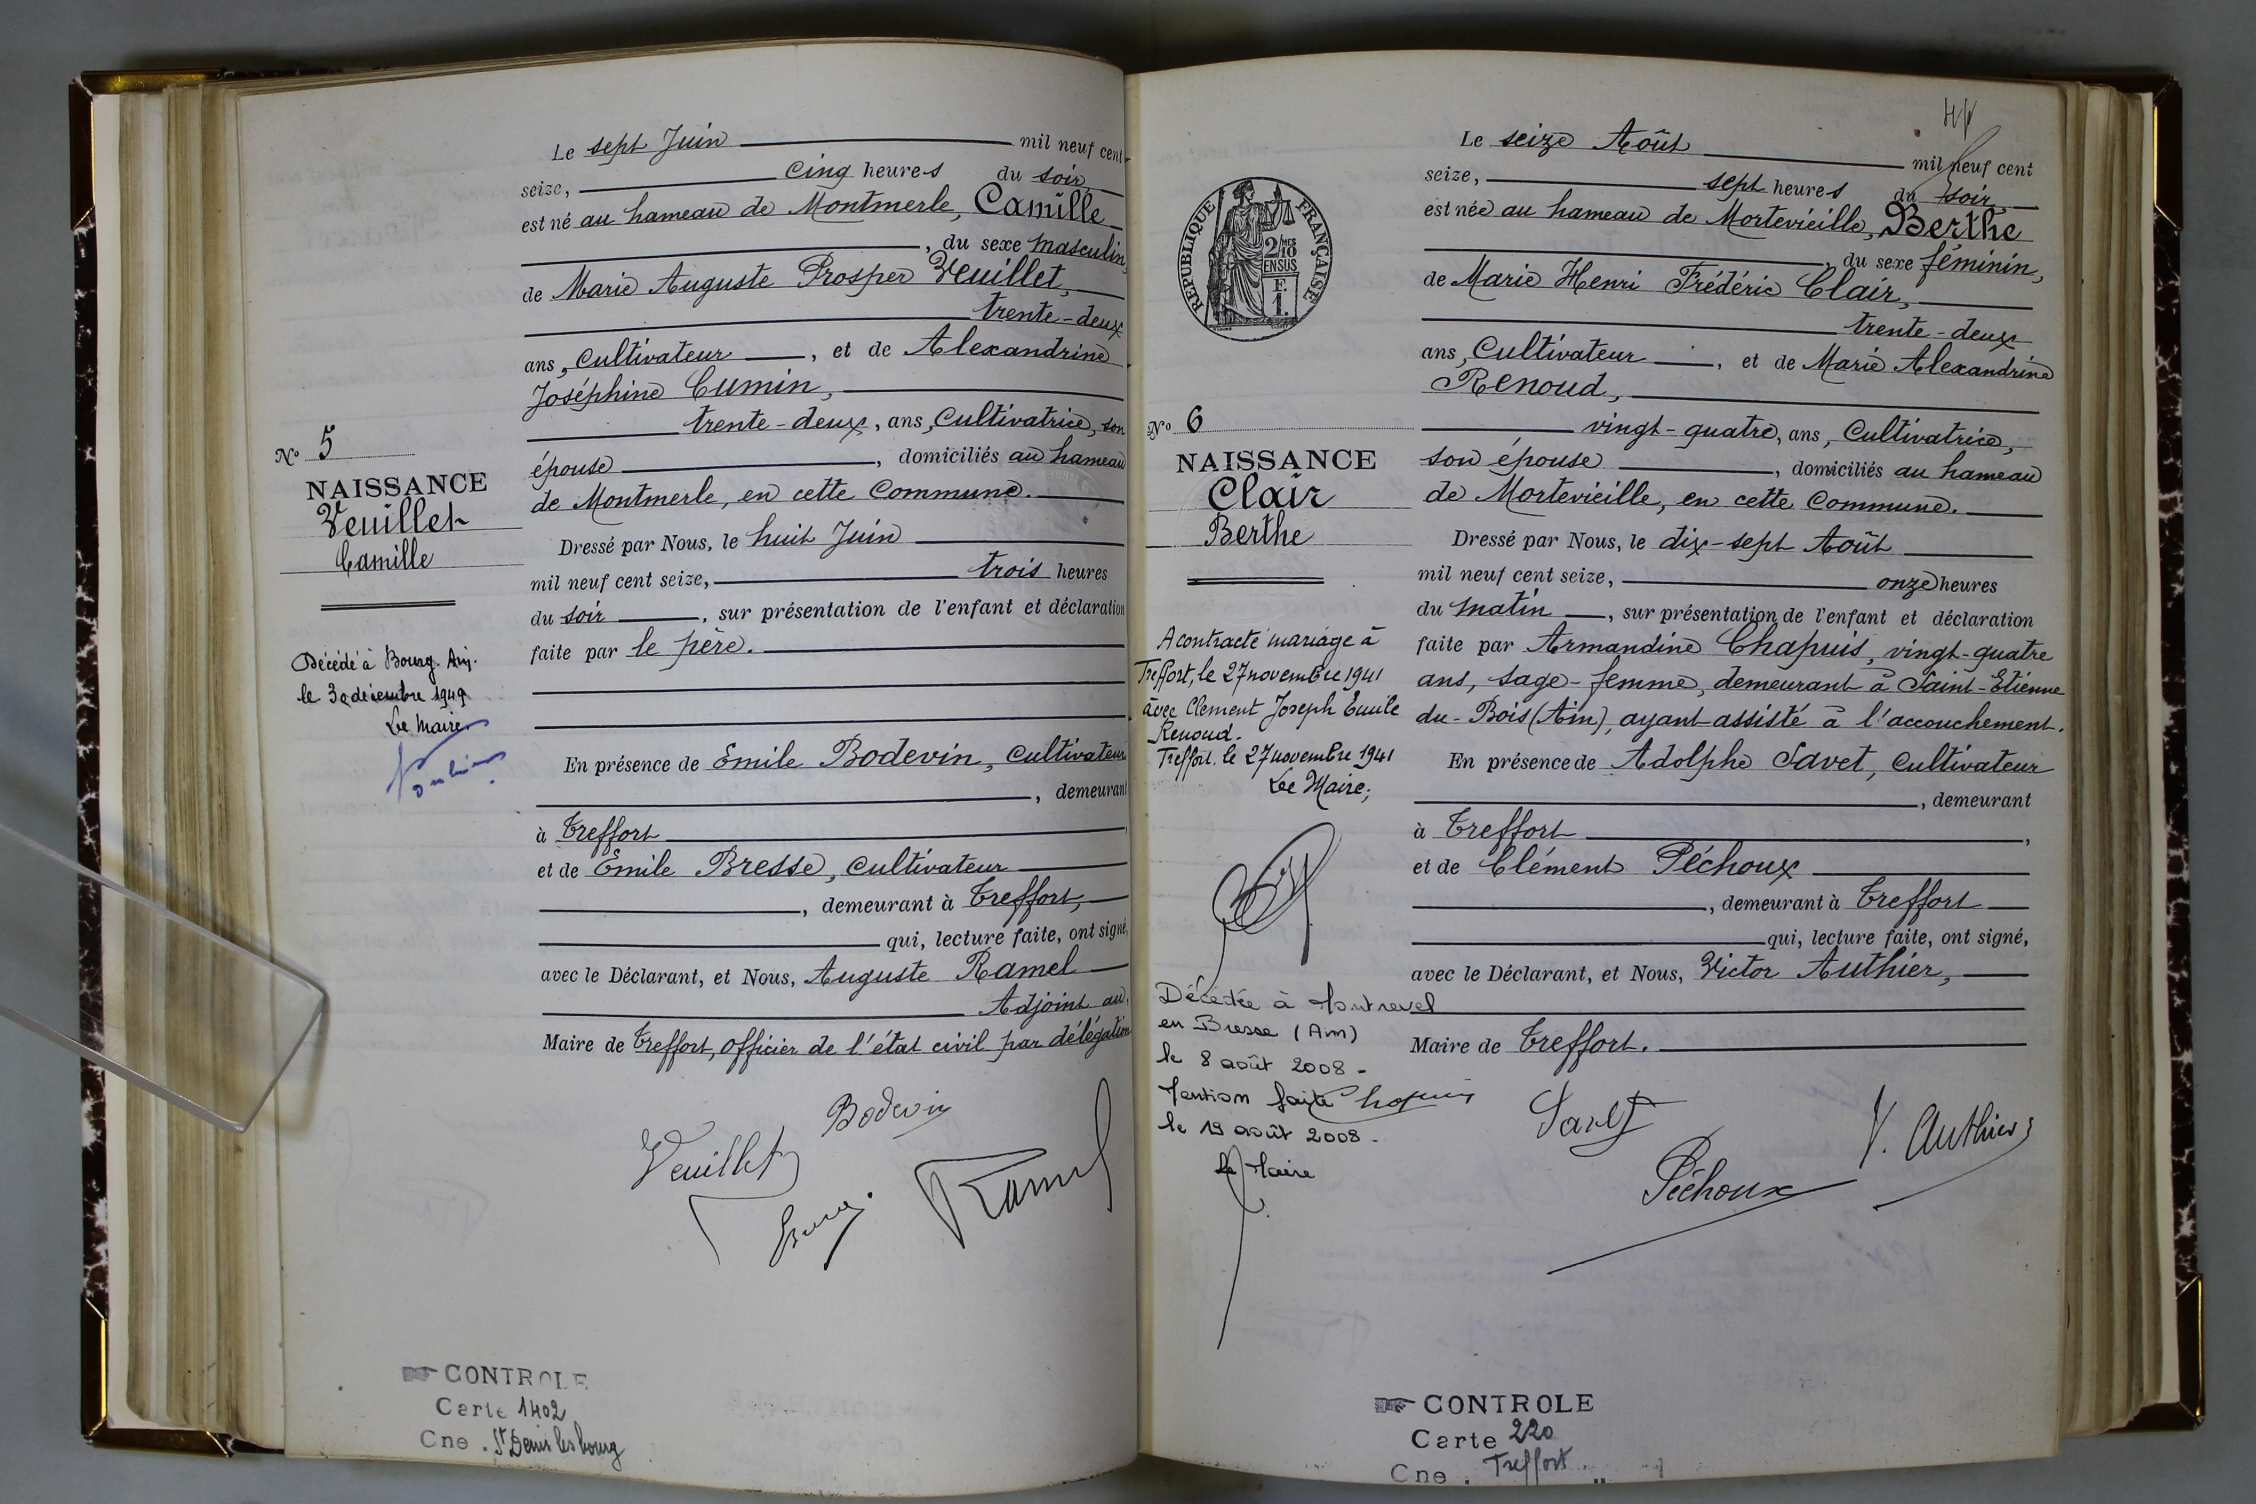 Le sept Juin mil neuf cent
seize, cinq heures du soir,
est né au hameau de Montmerle, Camille
, du sexe masculin,
de Marie Auguste Prosper Veuillet,
trente-deux
ans, Cultivateur, et de Alexandrine
Joséphine Cumin,
trente-deux, ans, Cultivatrice, son
épouse, domiciliés au hameau
de Montmerle, en cette Commune.
Dressé par Nous, le huit Juin
mil neuf cent seize, trois heures
du soir, sur présentation de l'enfant et déclaration
faite par le père.
En présence de Emile Bodevin, Cultivateur
, demeurant
à Treffort
et de Emile Bresse, cultivateur
, demeurant à Treffort,
qui, lecture faite, ont signé,
avec le Déclarant, et Nous, Auguste Ramel
Adjoint au
Maire de Treffort, officier de l'état civil par délégation
Bodevin
Veuillet
Ramel
No 5
NAISSANCE
Veuillet
Camille
Décédé à Bourg. Ain.
le 30 décembre 1949
Le Maire
CONTROLE
Carte 1402
Cne . St Denis les bourg
HV
Le seize Août mil neuf cent
seize, sept heures du soir
est née au hameau de Mortevieille, Berthe
, du sexe féminin,
de Marie Henri Frédéric Clair,
trente-deux
ans, Cultivateur, et de Marie Alexandrine
Renoud,
vingt-quatre, ans, Cultivatrice,
son épouse, domiciliés au hameau
de Mortevieille, en cette Commune.
Dressé par Nous, le dix-sept Août
mil neuf cent seize, onze heures
du matin, sur présentation de l'enfant et déclaration
faite par Armandine Chapuis, vingt-quatre
ans, sage-femme, demeurant à Saint-Etienne
du-Bois (Ain), ayant assisté à l'accouchement.
En présence de Adolphe Savet, cultivateur
, demeurant
à Treffort,
et de Clément Péchoux
, demeurant à Treffort
qui, lecture faite, ont signé,
avec le Déclarant, et Nous, Victor Authier,
Maire de Treffort.
Chapuis
Savet
V. Authier
Péchoux
REPUBLIQUE FRANÇAISE
2/10MES
EN SUS
F.
1.
No 6
NAISSANCE
Clair
Berthe
A contracté mariage à
Treffort, le 27 novembre 1941
avec Clément Joseph Emile
Renoud.
Treffort. le 27 novembre 1941
Le Maire;
Décédée à Montrevel
en Bresse (Ain)
le 8 août 2008 -
Mention faite
le 19 août 2008 -
Le Maire
CONTROLE
Carte 220
Cne . Treffort